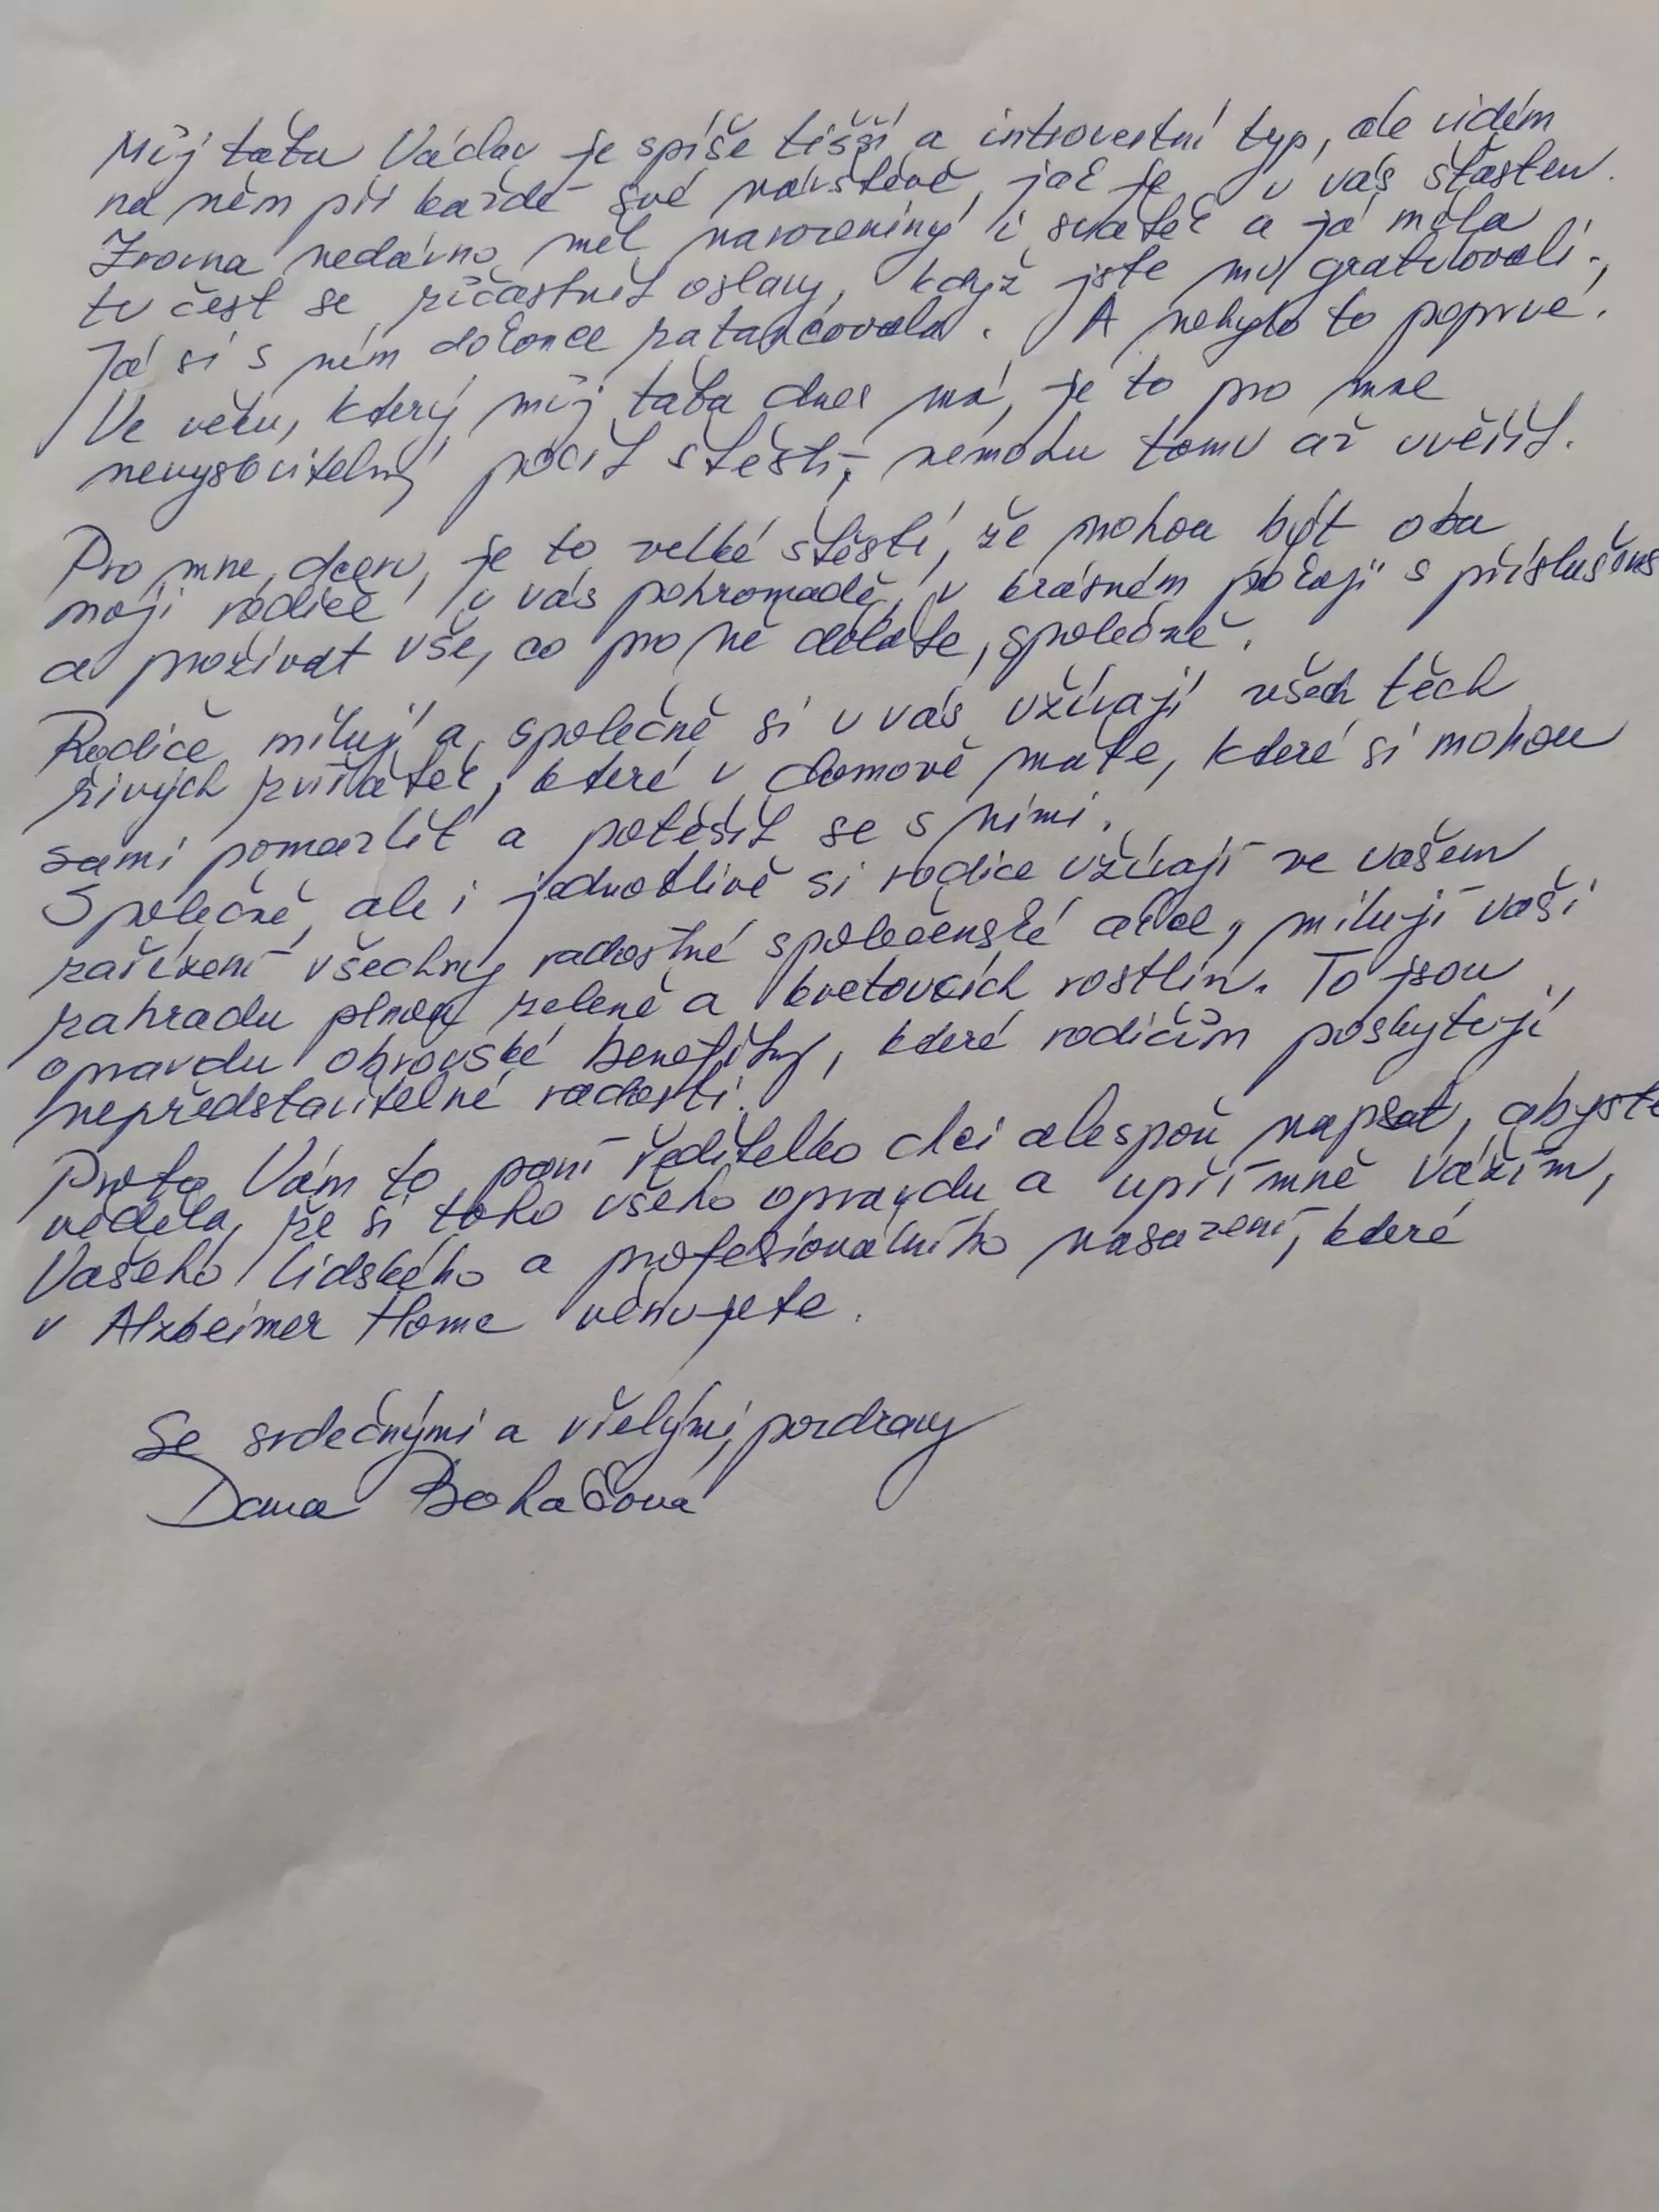 Můj táta Václav je spíše tišší a introvertní typ, ale vidím
na něm při každé své návštěvě, jak je u vás šťasten.
Zrovna nedávno měl narozeniny i svátek a já měla
tu čest se zúčastnit oslavy, když jste mu gratulovali.
Já si s ním dokonce zatancovala. A nebylo to poprvé.
Ve věku, který můj táta dnes má, je to pro mne
nevyslovitelný pocit štěstí, nemohu tomu až uvěřit.
Pro mne, dceru, je to velké štěstí, že mohou být oba
moji rodiče u vás pohromadě, v krásném pokoji s příslušens
a prožívat vše, co pro ně děláte, společně.
Rodiče milují a společně si u vás užívají všech těch
živých zvířátek, které v domově máte, které si mohou
sami pomazlit a potěšit se s nimi.
Společně, ale i jednotlivě si rodiče užívají ve vašem
zařízení všechny radostné společenské akce, milují vaši
zahradu plnou zeleně a kvetoucích rostlin. To jsou
opravdu obrovské benefity, které rodičům poskytují
nepředstavitelné radosti.
Proto Vám to, paní ředitelko chci alespoň napsat, abyste
věděla, že si toho všeho opravdu a upřímně vážím,
Vašeho lidského a profesionálního nasazení, které
v Alzheimer Home věnujete.
Se srdečnými a vřelými pozdravy
Dana